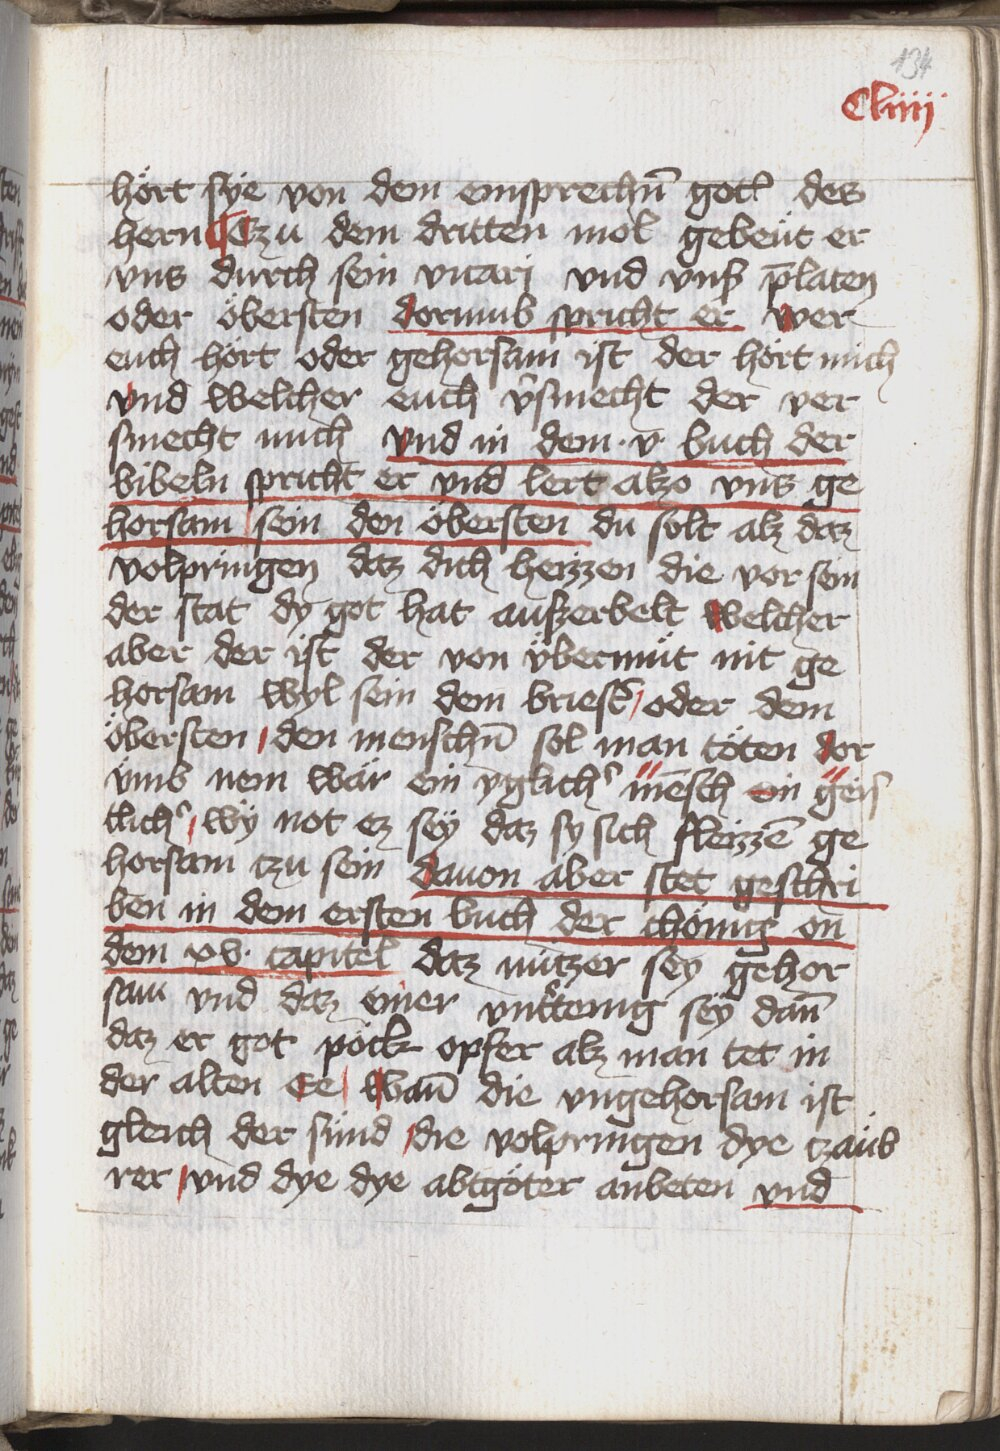 134
Cliiij
hört sÿe von dem einsprechn̄ gotꝭ des
hern Czu dem dritten mol gebeüt er
vns durch sein vicari vnd vnß p̄laten
oder öbersten dorumb spricht er wer
euch hört oder gehorsam ist der hört mich
vnd welcher euch v̉smecht der ver
smecht mich vnd in dem · v · buch der
bibeln spricht er vnd lert alzo vns ge
horsam sein den öbersten du solt alz daz
volpringen daz dich heizzen die vor sein
der stat dy got hat außerbelt welcher
aber der ist der von v̈bermüt nit ge
horsam wyl sein dem briest̉ oder dem
öbersten den menschn̄ sol man töten dor
ümb nem wär ein yglich̉ mēsch ein geis
tlich̉ wÿ not ez sëy daz sy sich fleizzē ge
horsam czu sein dauon aber stet geschri
ben in dem ersten buch der chönig on
dem xv · capitel daz nützer sey gehor
sam vnd daz einer vnt̉tenig sëy dan̄
daz er got pöck opfer alz man tet in
der alten Ee wan̄ die vngehorsam ist
gleich der sünd die volpringen dye czaüb
rer vnd dye dye abtgöter anbeten vnd